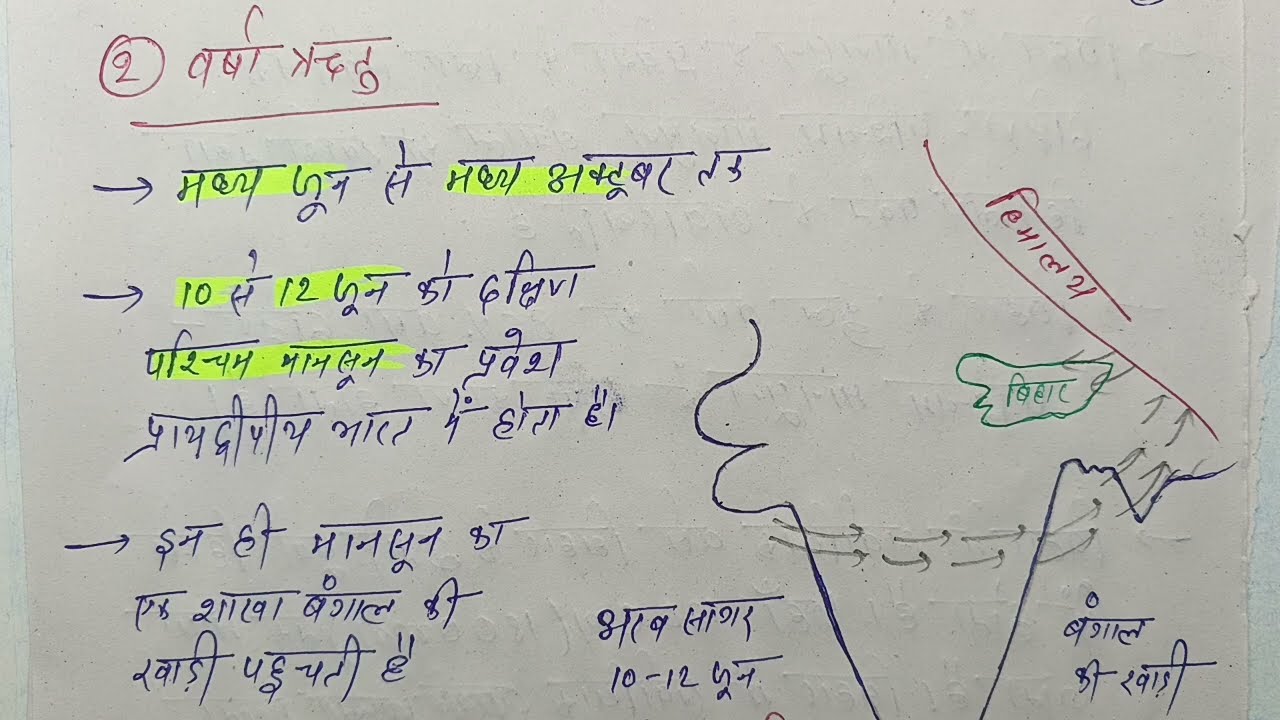 ② वर्षा ऋतु
→ मध्य जून से मध्य अक्टूबर तक
→ 10 से 12 जून को दक्षिण
पश्चिम मानसून का प्रवेश
प्रायद्वीपीय भारत में होता है।
→ इन ही मानसून का
एक शाखा बंगाल की
खाड़ी पहुचती है
हिमालय
बिहार
अरब सागर
10-12 जून
बंगाल
की खाड़ी